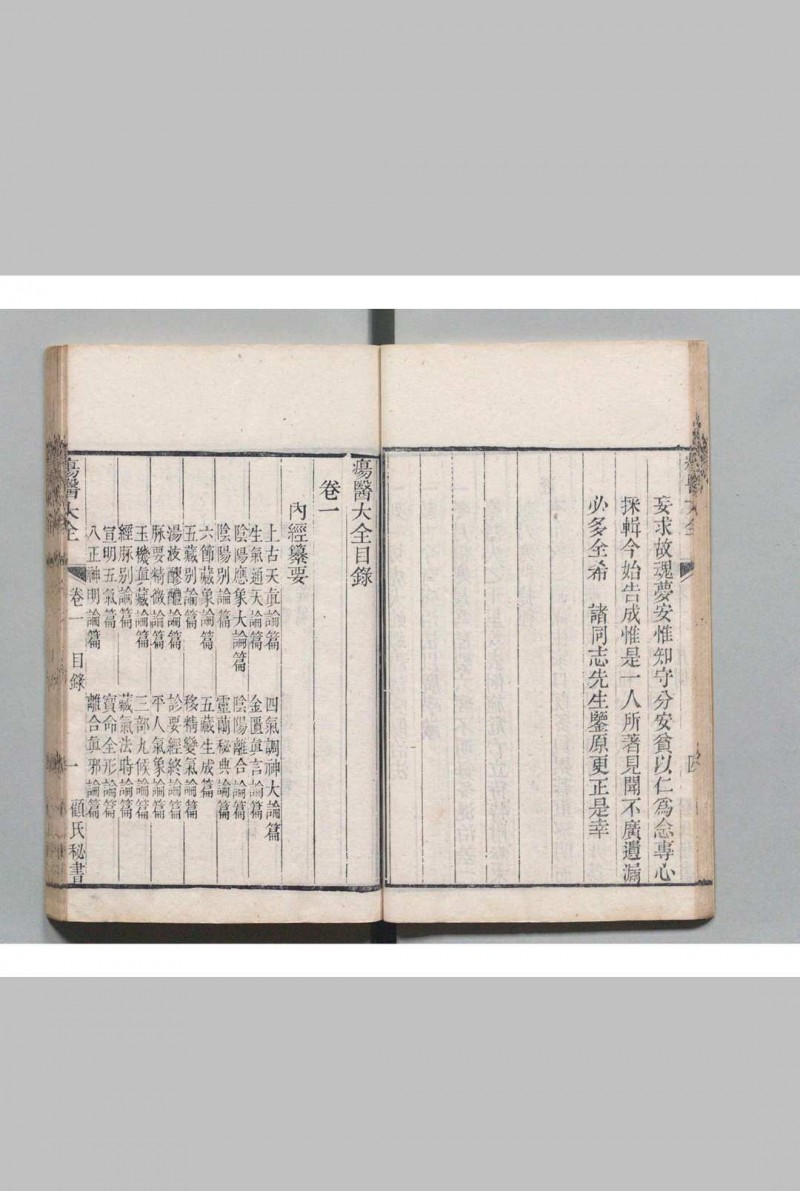 妄求故魂夢安惟知守分安貧以仁爲念專心
採輯今始告成惟是一人所著見聞不廣遺漏
必多全希　諸同志先生鑒原更正是幸
瘍醫大全目錄
卷一
內經纂要
上古天眞論篇　四氣調神大論篇
生氣通天論篇　金匱眞言論篇
陰陽應象大論篇　陰陽離合論篇
陰陽別論篇　靈蘭秘典論篇
六節藏象論篇　五藏生成篇
五藏別論篇　移精變氣論篇
湯液醪醴論篇　診要經終論篇
脈要精微論篇　平人氣象論篇
玉機眞藏論篇　三部九候論篇
經脈別論篇　藏氣法時論篇
宣明五氣篇　寶命全形論篇
八正神明論篇　離合眞邪論篇
瘍醫大全　卷一　目錄　一　顧氏秘書